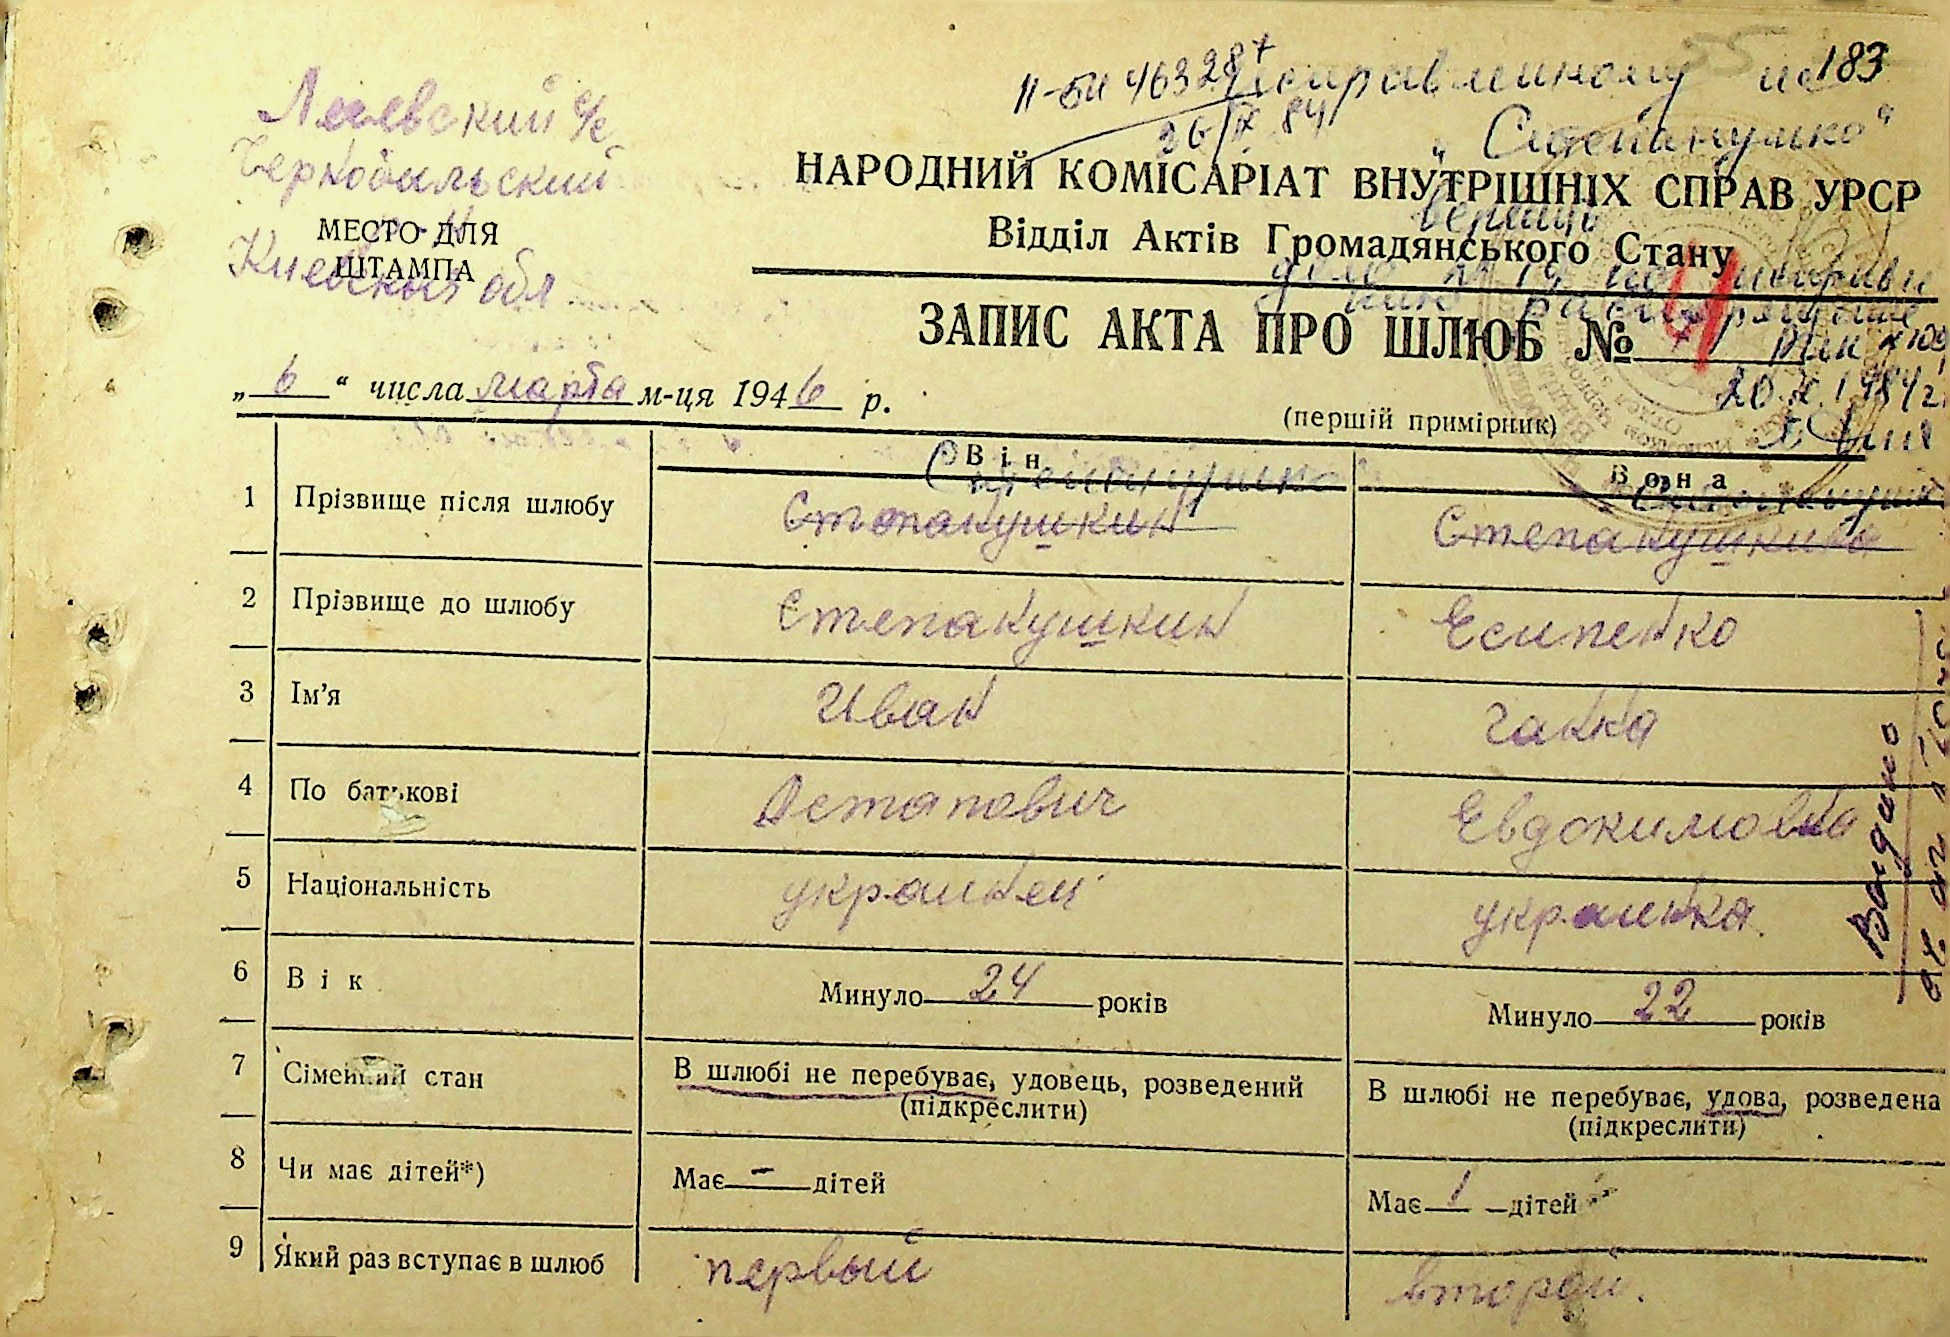 183
11-БИ 463287
26/IX 84
Исправленому на
"Степанушко"
верить
Лелевский с/с
Чернобильский
р-н
Киевская обл
МЕСТО ДЛЯ
ШТАМПА
НАРОДНИЙ КОМІСАРІАТ ВНУТРІШНІХ СПРАВ УРСР
Відділ Актів Громадянського Стану
ЗАПИС АКТА ПРО ШЛЮБ № 4
20.IX.1984 г.
„6“ числа марта м-ця 1946 р.
(перший примірник)
Він Вона
Степанушко
1 Прізвище після шлюбу Степанушкин Степанушкина
2 Прізвище до шлюбу Степанушкин Есипенко
3 Ім'я Иван Ганна
4 По батькові Остапович Евдокимовна
5 Національність украинец украинка
6 Вік Минуло 24 років Минуло 22 років
7 Сімейний стан В шлюбі не перебуває, удовець, розведений В шлюбі не перебуває, удова, розведена
(підкреслити) (підкреслити)
8 Чи має дітей*) Має - дітей Має 1 дітей
9 Який раз вступає в шлюб первый второй.
Видано